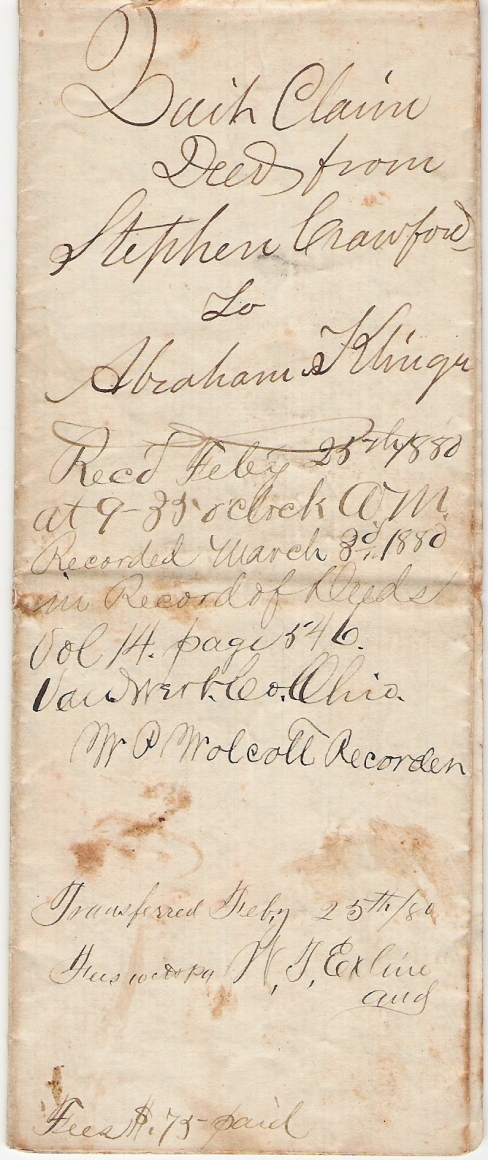 Quit Claim
Deed from
Stephen Crawford
To
Abraham Klinger
Rec'd Feby 25th 1880
at 9-35 o'clock A.M.
Recorded March 3d, 1880
in Record of Deeds
Vol 14. page 546.
Van Wert. Co. Ohio.
W P Wolcott Recorder
Transferred Feby 25th/80
Exline
aud
Fees $.75 paid